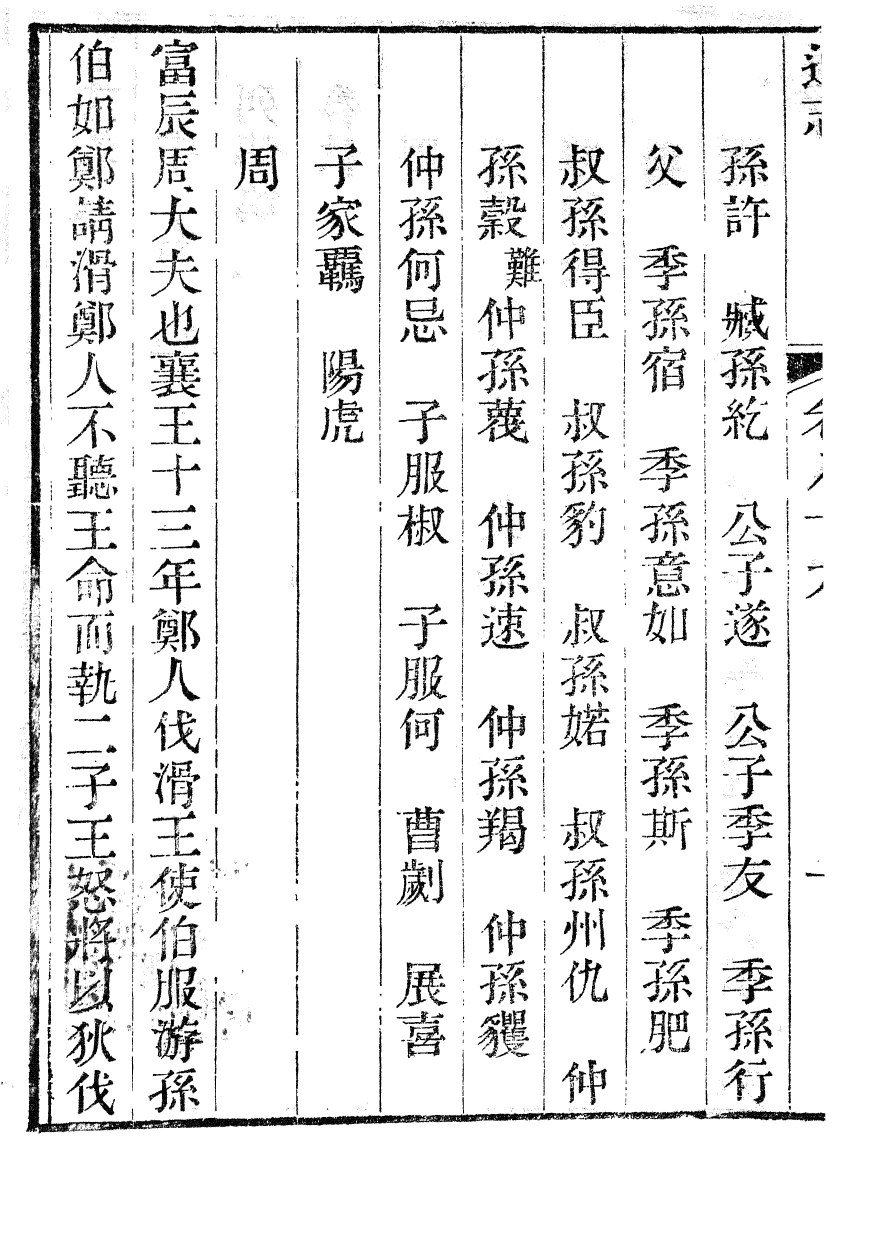 通志
孫許　臧孫紇　公子遂　公子季友　季孫行
父　季孫宿　季孫意如　季孫斯　季孫肥
叔孫得臣　叔孫豹　叔孫婼　叔孫州仇　仲
孫穀難　仲孫蔑　仲孫速　仲孫羯　仲孫貜
仲孫何忌　子服椒　子服何　曹劌　展喜
子家羈　陽虎
周
富辰周大夫也襄王十三年鄭人伐滑王使伯服游孫
伯如鄭請滑鄭人不聽王命而執二子王怒將以狄伐